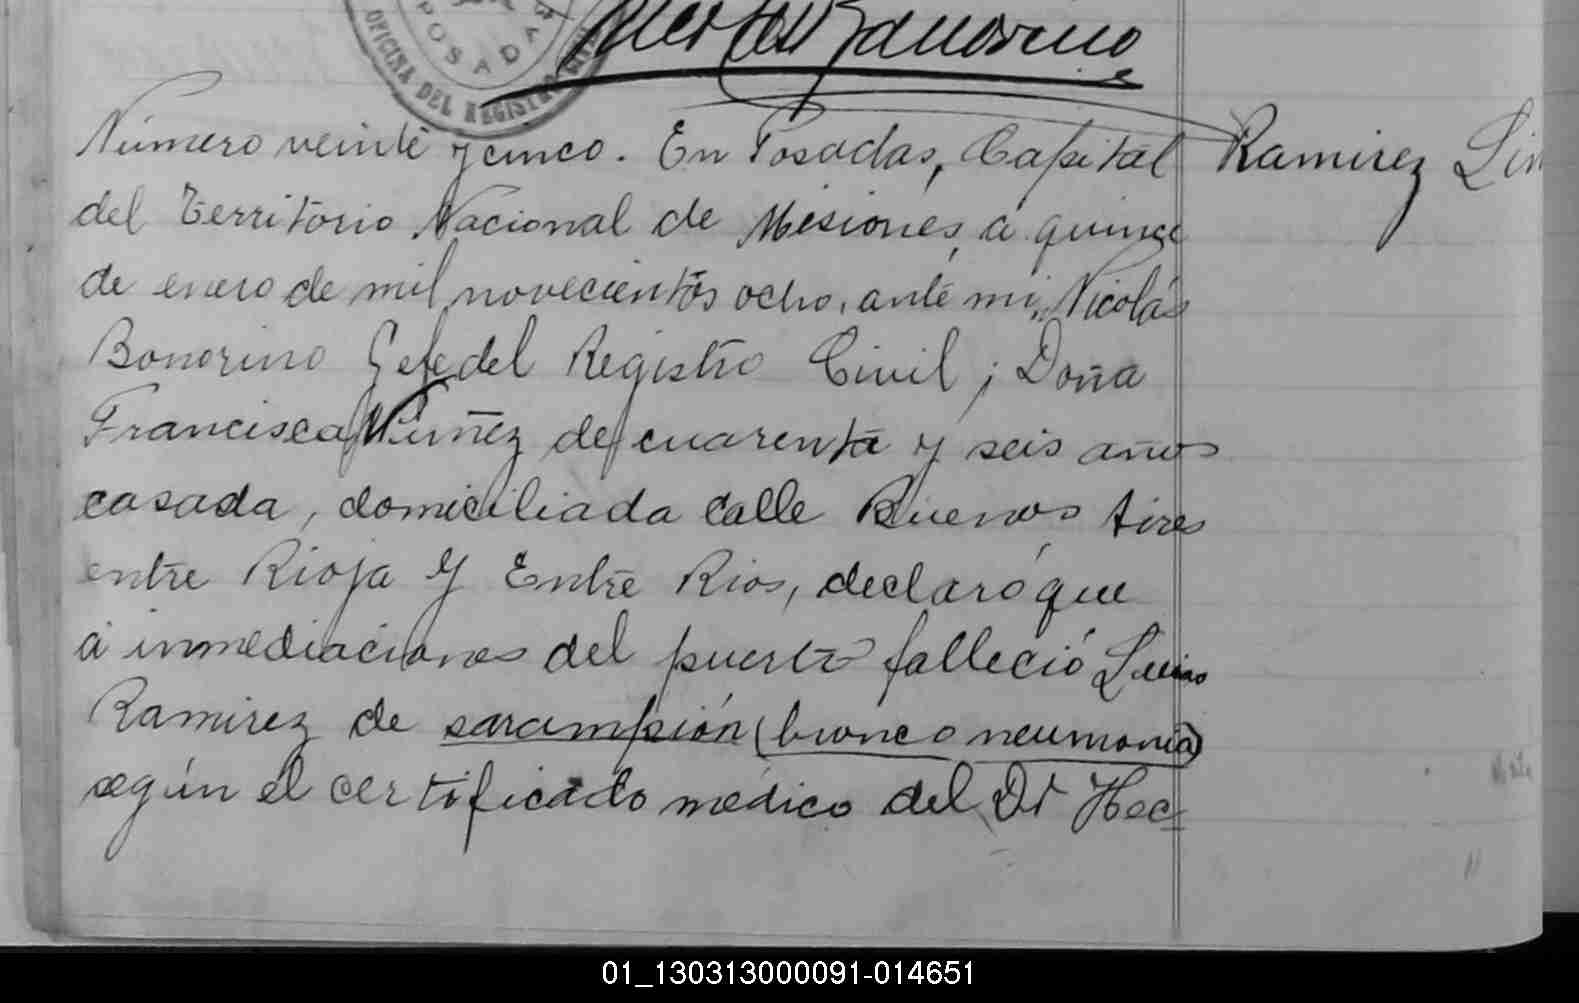 POSADAS
OFICINA DEL REGISTRO
Bonorino
Número veinte y cinco. En Posadas, Capital
Ramirez
del Territorio Nacional de Misiones, a quince
de enero de mil novecientos ocho, ante mi, Nicolás
Bonorino Gefe del Registro Civil; Doña
Francisca Nuñez de cuarenta y seis años
casada, domiciliada calle Buenos Aires
entre Rioja y Entre Rios, declaró que
á inmediaciones del puerto falleció
Ramirez de sarampión (bronco neumonia)
según el certificado médico del Dr Hec
01_130313000091-014651